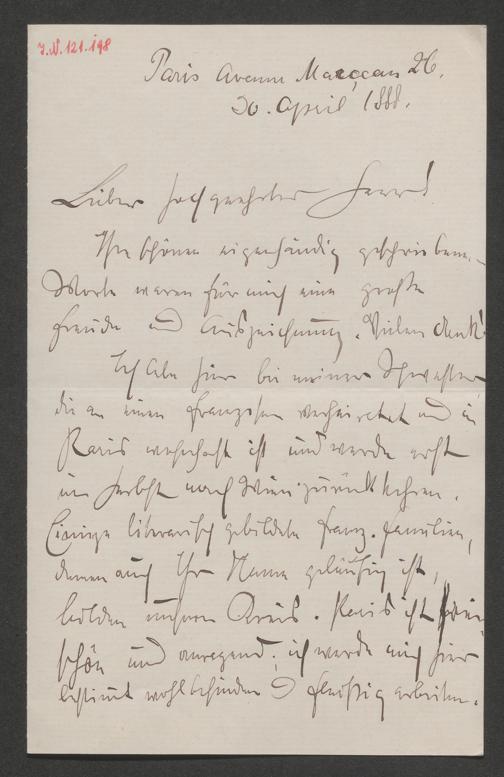 J.N. 121.198
Paris Avenue Marceau 26.
30. April 1888.
Lieber hochgeehrter Herr!
Ihre schönen eigenhändig geschriebenen
Worte waren für mich eine große
Freude und Auszeichnung. Vielen Dank!
Ich lebe hier bei meiner Schwester,
die an einen Franzosen verheiratet und in
Paris wohnhaft ist und werde erst
im Herbst nach Wien zurückkehren.
Einige literarisch gebildete franz. Familien,
denen auch Ihr Name geläufig ist,
bilden unseren Kreis. Paris ist
schön und anregend; ich werde mich hier
bestimmt wohl befinden u fleißig arbeiten.